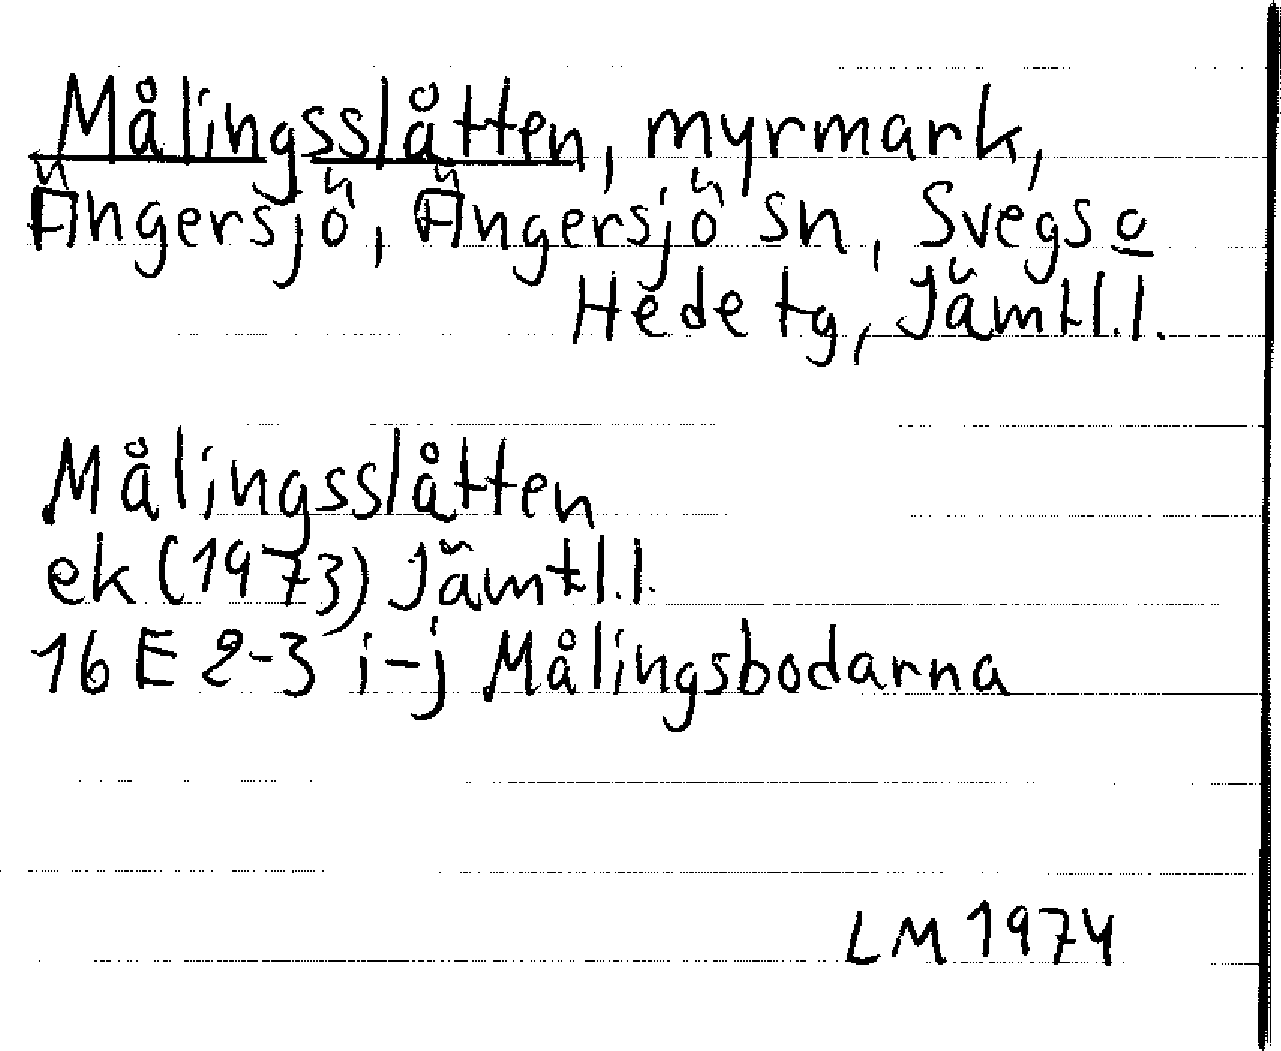 Målingsslåtten, myrmark,
Ängersjö, Ängersjö sn, Svegs o
Hede tg, Jämtl.l.
Målingsslåtten
ek (1973) Jämtl.l.
16 E 2-3 i-j Målingsbodarna
LM 1974